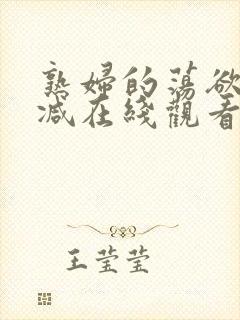 熟婦的蕩欲
減在綫觀看
王莹莹